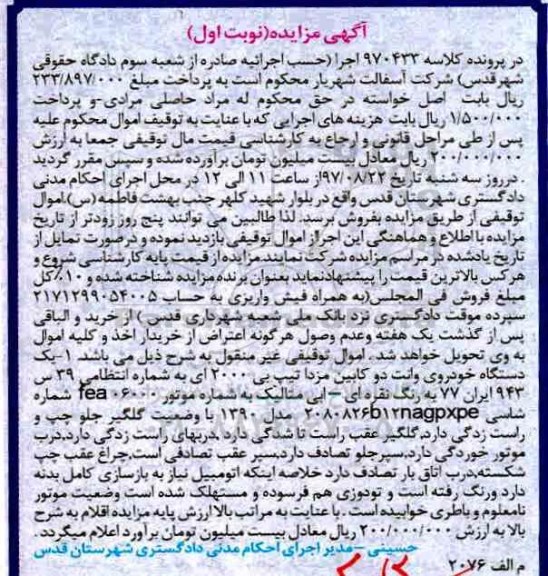 آگهی مزایده(نوبت اول)
در پرونده کلاسه ۹۷۰۴۳۳ اجرا (حسب اجرائیه صادره از شعبه سوم دادگاه حقوقی
شهرقدس) شرکت آسفالت شهریار محکوم است به پرداخت مبلغ ۲۳۳/۸۹۷/۰۰۰
ریال بابت اصل خواسته در حق محکوم له مراد حاصلی مرادی-و پرداخت
۱/۵۰۰/۰۰۰ ریال بابت هزینه های اجرایی که با عنایت به توقیف اموال محکوم علیه
پس از طی مراحل قانونی و ارجاع به کارشناسی قیمت مال توقیفی جمعا به ارزش
۲۰۰/۰۰۰/۰۰۰ ریال معادل بیست میلیون تومان برآورده شده و سپس مقرر گردید
درروز سه شنبه تاریخ ۹۷/۰۸/۲۲از ساعت ۱۱ الی ۱۲ در محل اجرای احکام مدنی
دادگستری شهرستان قدس واقع در بلوار شهید کلهر جنب بهشت فاطمه (س) اموال
توقیفی از طریق مزایده بفروش برسد. لذا طالبین می توانند پنج روز زودتر از تاریخ
مزایده با اطلاع و هماهنگی این اجرا از اموال توقیفی بازدید نموده و درصورت تمایل از
تاریخ یادشده در مراسم مزایده شرکت نمایند.مزایده از قیمت پایه کارشناسی شروع و
هرکس بالاترین قیمت را پیشنهاد نماید بعنوان برنده مزایده شناخته شده و ۱۰٪ کل
مبلغ فروش فی المجلس(به همراه فیش واریزی به حساب ۲۱۷۱۲۹۹۰۵۴۰۰۵
سپرده موقت دادگستری نزد بانک ملی شعبه شهرداری قدس ) از خرید و الباقی
پس از گذشت یک هفته وعدم وصول هرگونه اعتراض از خریدار اخذ و کلیه اموال
به وی تحویل خواهد شد . اموال توقیفی غیر منقول به شرح ذیل می باشد. ۱-یک
دستگاه خودروی وانت دو کابین مزدا تیپ بی ۲۰۰۰ ای به شماره انتظامی ۳۹ س
۹۴۳ ایران ۷۷ به رنگ نقره ای – ابی متالیک به شماره موتور fea ۰۶۰۰۰ شماره
شاسی ۲۰۸۰۸۲۶b۱۲nagpxpe مدل ۱۳۹۰ با وضعیت گلگیر جلو چپ و
راست زدگی دارد.گلگیر عقب راست تا شدگی دارد .دربهای راست زدگی دارد.درب
موتور خوردگی دارد.سپرجلو تصادف دارد.سپر عقب تصادفی است.چراغ عقب چپ
شکسته.درب اتاق بار تصادف دارد خلاصه اینکه اتومبیل نیاز به بازسازی کامل بدنه
دارد ورنگ رفته است و تودوزی هم فرسوده و مستهلک شده است وضعیت موتور
نامعلوم و باطری خوابیده است . با عنایت به مراتب بالا ارزش پایه مزایده اقلام به شرح
بالا به ارزش ۲۰۰/۰۰۰/۰۰۰ ریال معادل بیست میلیون تومان برآورد اعلام میگردد .
حسینی –مدیر اجرای احکام مدنی دادگستری شهرستان قدس
م الف ۲۰۷۶